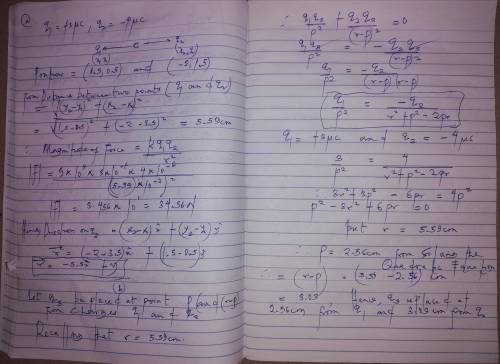 q₁ = +3μc, q₂ = -4μc
q₁ C q₂
(x₁,y₁) (x₂,y₂)
Position = (3.5, 0.5) and (-2, 1.5)
Distance between two points (q₁ and q₂)
= √(y₂-y₁)² + (x₂-x₁)²
= √(1.5-0.5)² + (-2-3.5)² = 5.59cm
∴ Magnitude of Force = kq₁q₂/r²
|F| = 9x10⁹ x 3x10⁻⁶ x 4x10⁻⁶/(5.59x10⁻²)²
|F| = 3.456x10¹ = 34.56N
Hence, = (x₂-x₁)î + (y₂-y₁)ĵ
r⃗ = (-2-3.5)î + (1.5-0.5)ĵ
r⃗ = -5.5î + ĵ
(b)
Let q₃ be placed at point P and (r-p)
from charges q₁ and q₂
Recalling that r = 5.59cm.
∴ q₁q₃/p² + q₂q₃/(r-p)² = 0
q₁q₃/p² = -q₂q₃/(r-p)²
q₁/p² = -q₂/(r-p)(r-p)
q₁/p² = -q₂/r²+p²-2pr
q₁ = +3μc and q₂ = -4μc
3/p² = 4/r²+p²-2pr
∴ 3r²+3p² - 6pr = 4p²
p² - 3r² + 6pr = 0
put r = 5.59cm
∴ P = 2.56cm from solving the
Quadratic Equation
∴ = (r-p) = (5.59 - 2.56) cm
= 3.39
Hence, q₃ is placed at
2.56cm from q₁ and 3.39cm from q₂